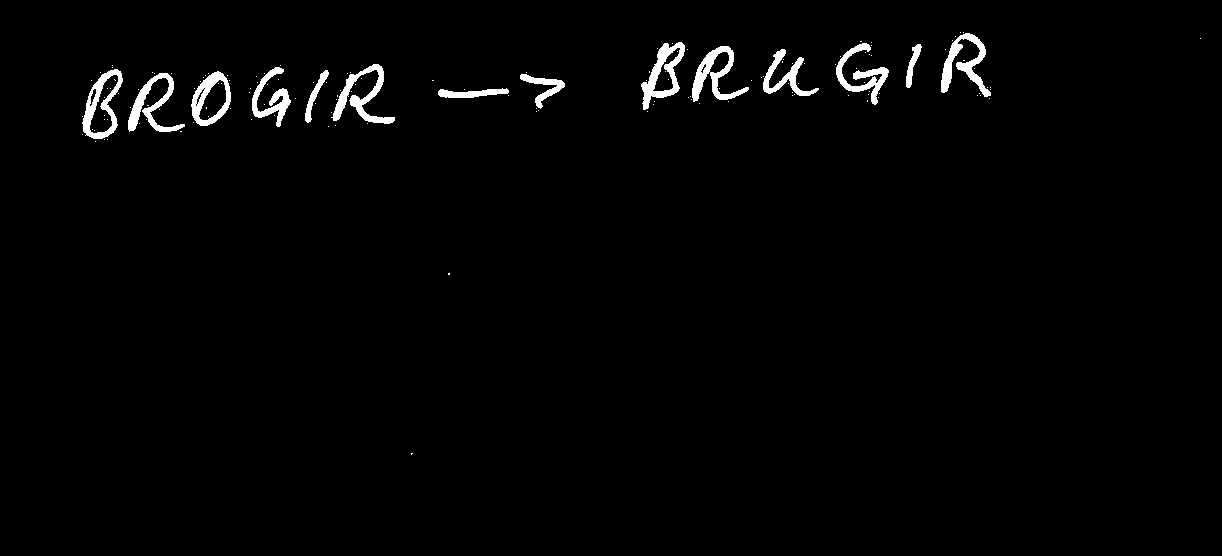 BROGIR -> BRUGIR